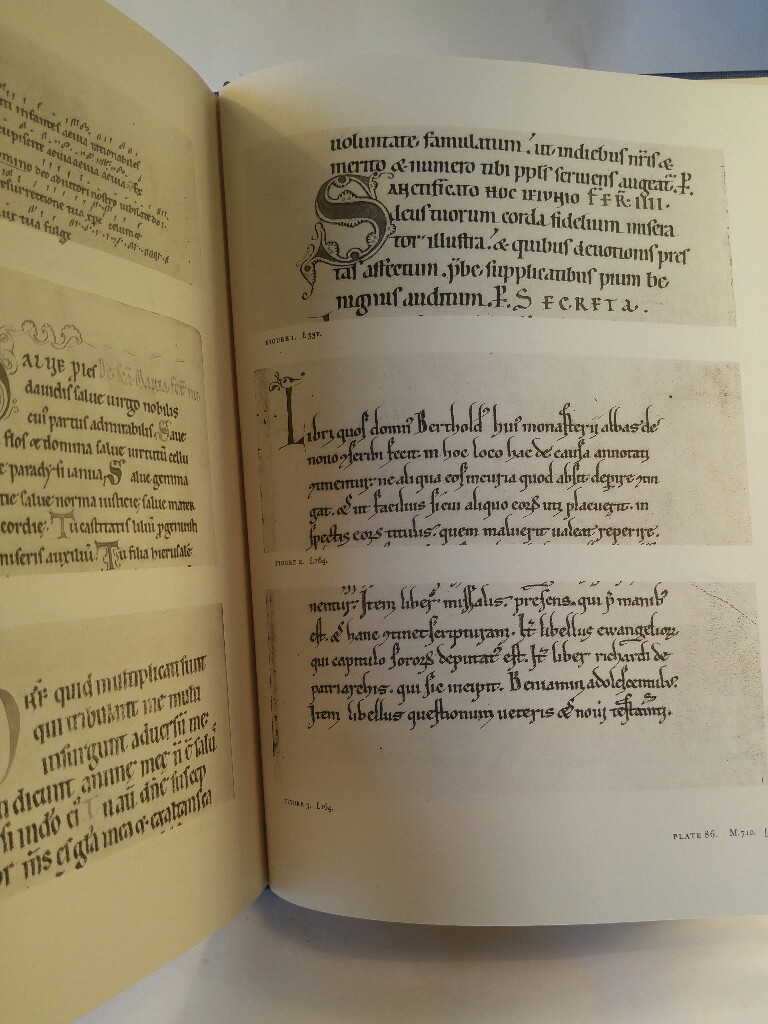 ti infantes aeuia rationabiles
cupiscite aeuia aeuia aeuia. Ps
omino deo adiutori nostro iubilate do.
esurrectione tua xpe celum &
ur tua fulge
SALUE pies
dauidis salue uirgo nobilis
cui' partus admirabilis Saue
flos & domina salue uirtutū cellu
e parady si ianua, Salue gemma
tie salue norma iusticie, salue mater
cordie. Tu castitatis liliū pgenuisti
miseris auxiliū Tu filia hierusale
quid multiplicati sunt
qui tribulant me multi
insurgunt aduersū me
i dicunt anime mee n̄ ē salu
T u aū dn̄e suscep
m̄s es gl̄a mea & exaltans ca
uoluntate famulatum. ut indiebus nr̄is &
merito & numero tibi ppl̄s seruiens augeat.̄ P.
SANCTIFICATO HOC IEIUNIO F ER. IIII.
S leus tuorum corda fidelium misera
tor illustra. & quibus deuotionis pres
tas affectum. p̄be supplicatibus pium be
nignius auditum. P. SECRETA.
FIGURE 1. f.39v.
Libri quos domn' Berthold' hui' monasterij abbas de
nouo ꝯscribi fecit. in hoc loco hac de causa annotati
ꝯtinentur. ne aliqua eos incuria quod absit depire ꝯtin
gat. & ut facilius sicui aliquo eorꝫ uti placuerit. in
spectis eorꝫ titulis. quem maluerit ualeat reperire.
FIGURE 2. f.164.
nentur. Item liber missalis. presens. qui p̄ manib'
est. & hanc ꝯtinet scripturam. It̄ libellus ewangelioꝝ
qui capitulo sororꝫ deputat' est. It̄ liber richardi de
patriarchis. qui sic incipit. Beniamin adolescentulꝰ.
Item libellus questionum ueteris & noui testam̄ti.
FIGURE 3. f.164.
PLATE 86. M.710.